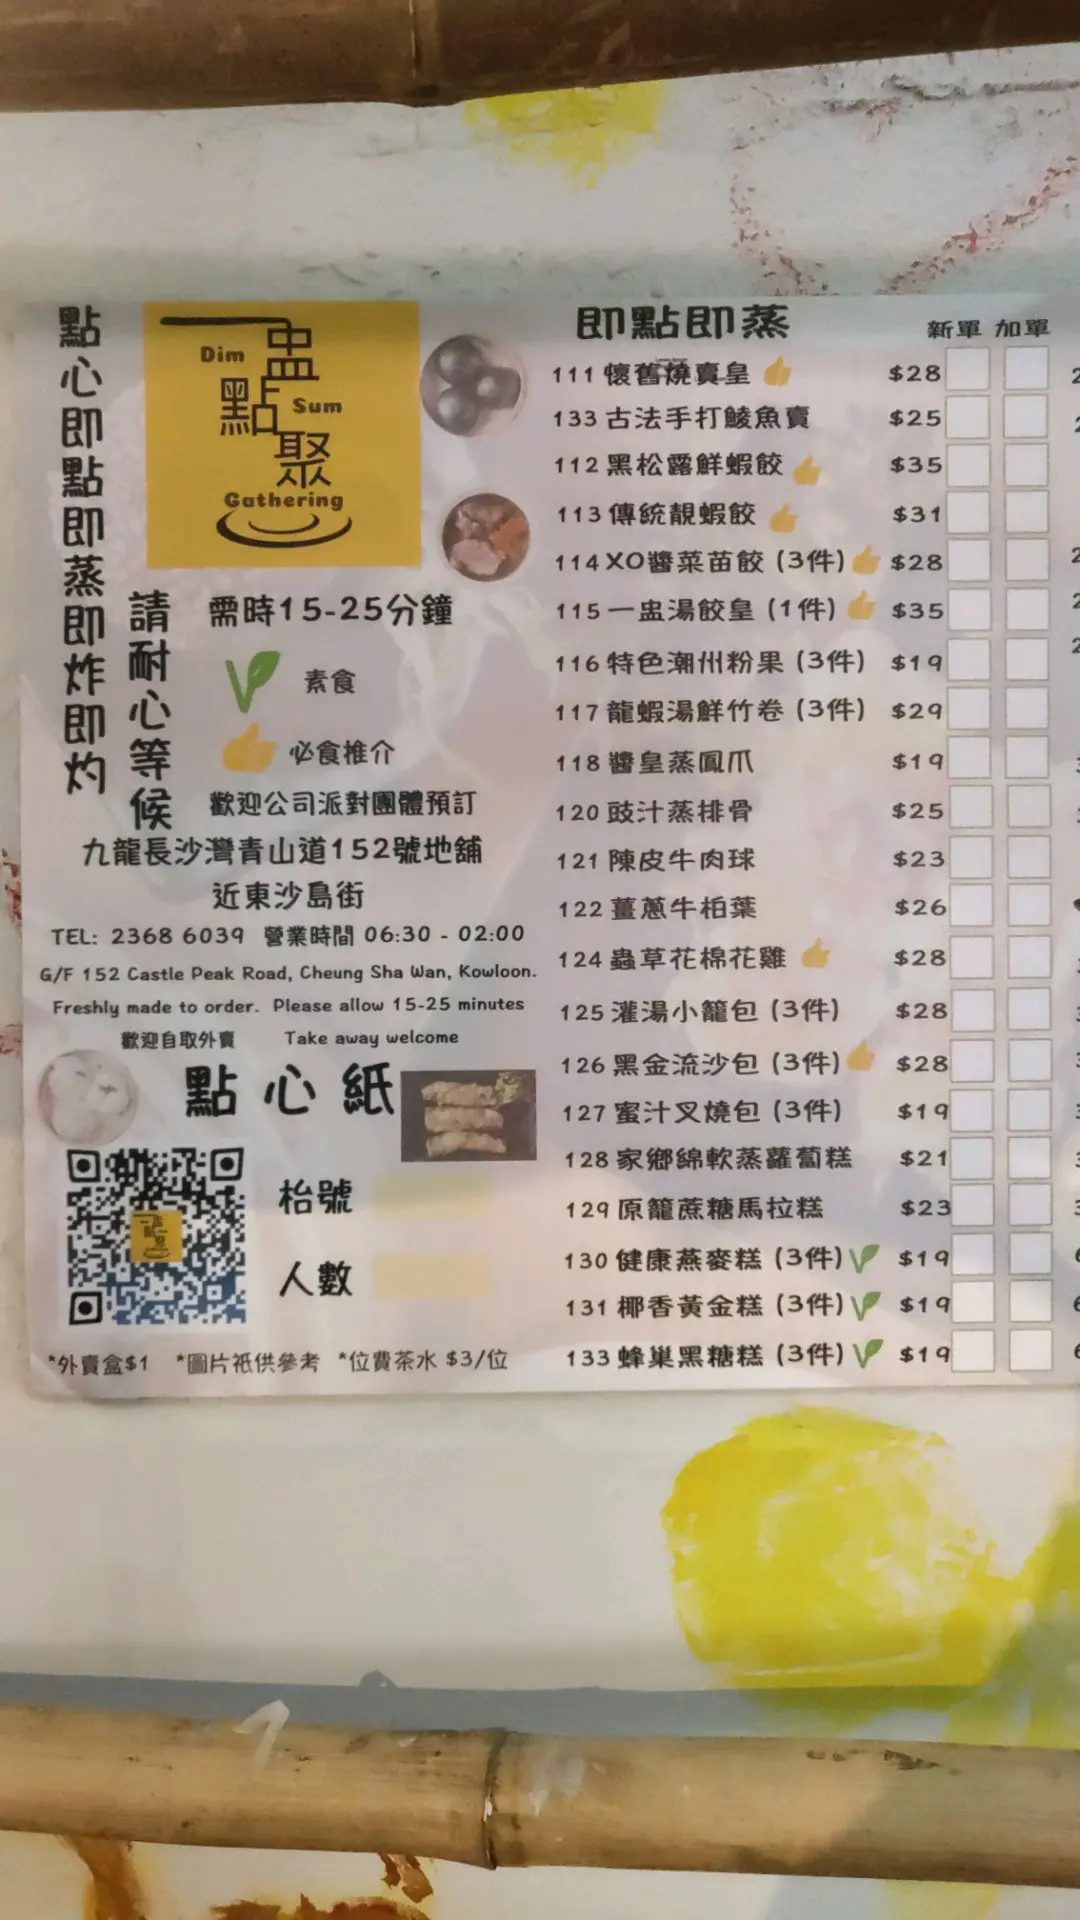 點心即點即蒸即炸即灼
請耐心等候
一盅
Dim
點
Sum
聚
Gathering
需時15-25分鐘
素食
必食推介
歡迎公司派對團體預訂
九龍長沙灣青山道152號地舖
近東沙島街
TEL: 2368 6039 營業時間 06:30 - 02:00
G/F 152 Castle Peak Road, Cheung Sha Wan, Kowloon.
Freshly made to order. Please allow 15-25 minutes
歡迎自取外賣 Take away welcome
點心紙
枱號
人數
*外賣盒$1 *圖片祇供參考 *位費茶水 $3/位
即點即蒸 新單 加單
111 懷舊燒賣皇 $28
133 古法手打鯪魚賣 $25
112 黑松露鮮蝦餃 $35
113 傳統靚蝦餃 $31
114 XO醬菜苗餃 (3件) $28
115 一盅湯餃皇 (1件) $35
116 特色潮州粉果 (3件) $19
117 龍蝦湯鮮竹卷 (3件) $29
118 醬皇蒸鳳爪 $19
120 豉汁蒸排骨 $25
121 陳皮牛肉球 $23
122 薑蔥牛柏葉 $26
124 蟲草花棉花雞 $28
125 灌湯小籠包 (3件) $28
126 黑金流沙包 (3件) $28
127 蜜汁叉燒包 (3件) $19
128 家鄉綿軟蒸蘿蔔糕 $21
129 原籠蔗糖馬拉糕 $23
130 健康燕麥糕 (3件) $19
131 椰香黃金糕 (3件) $19
133 蜂巢黑糖糕 (3件) $19